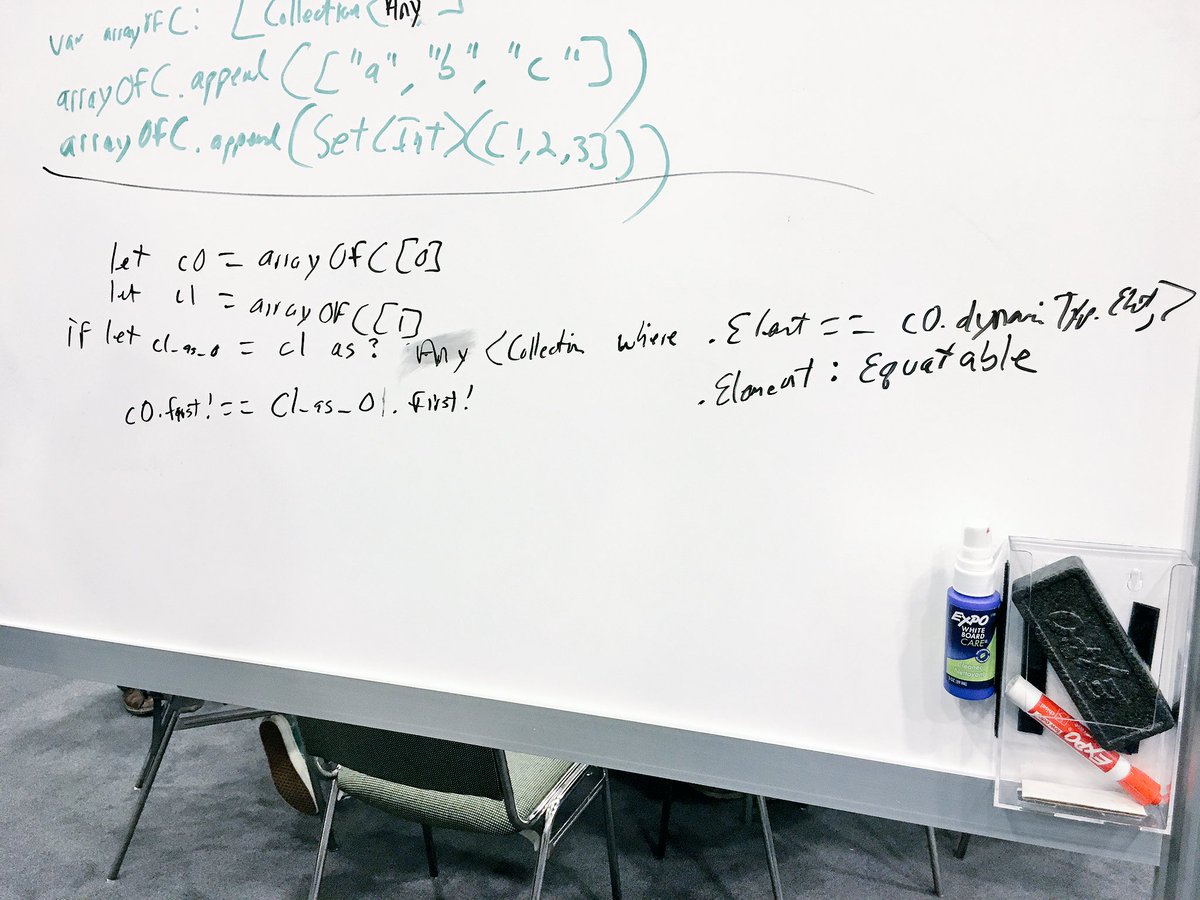 var arrayOfC: [Collection<Any ]
arrayOfC.append(["a", "b", "c"])
arrayOfC.append(Set<Int>([1,2,3]))
let c0 = arrayOfC[0]
let c1 = arrayOfC[1]
if let c1_as_0 = c1 as? Any <Collection where .Elemt == c0.dynamicType.Elmt>
.Element: Equatable
c0.first! == c1_as_0.first!
EXPO
WHITE
BOARD
CARE
Cleaner
Nettoyant
EXPO
EXPO